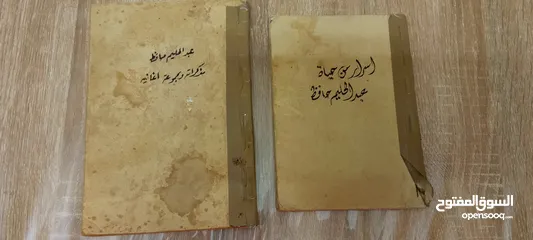 اسرار من حياة
عبد الحليم حافظ
عبد الحليم حافظ
مذكراته ومجموعة اغانيه
السوق المفتوح
opensooq.com